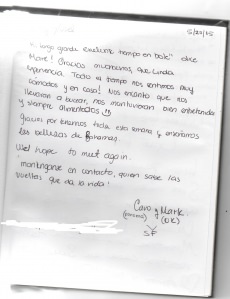 5/20/15
"... largo grande excelente tiempo en bote" dice
Mark! Gracias muchisimas, que linda
experiencia. Todo el tiempo nos sentimos muy
comodos y en casa! Nos encanto que nos
llevaran a bucear, nos mantuvieron bien entretenido
y siempre alimentados
Gracias por tenernos toda esta semana y enseñarnos
las bellezas de Bahamas.
We'll hope to meet again.
mantengane en contacto, quien sabe las
vueltas que da la vida!
Caro y Mark.
(UK)
SF